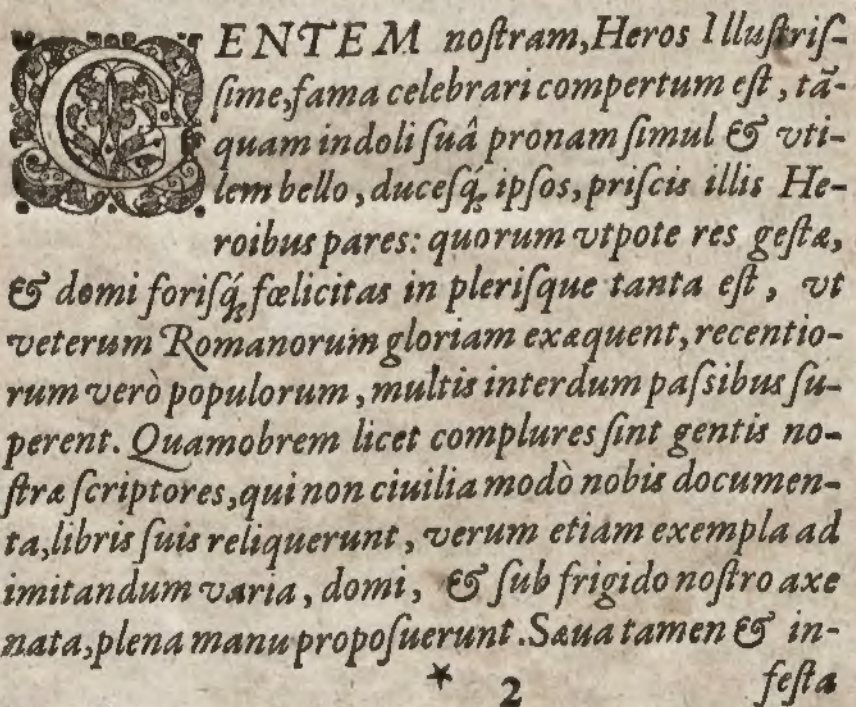 GENTEM noſtram, Heros Illuſtriſ-
ſime, fama celebrari compertum eſt, tã-
quam indoli ſuâ pronam ſimul & vti-
lem bello, duceſq́; ipſos, priſcis illis He-
roibus pares: quorum vtpote res geſtæ,
& domi foriſq́; fœlicitas in pleriſque tanta eſt, vt
veterum Romanorum gloriam exæquent, recentio-
rum verò populorum, multis interdum paſsibus ſu-
perent. Quamobrem licet complures ſint gentis no-
ſtræ ſcriptores, qui non ciuilia modò nobis documen-
ta, libris ſuis reliquerunt, verum etiam exempla ad
imitandum varia, domi, & ſub frigido noſtro axe
nata, plena manu propoſuerunt. Sæua tamen & in-
* 2 feſta